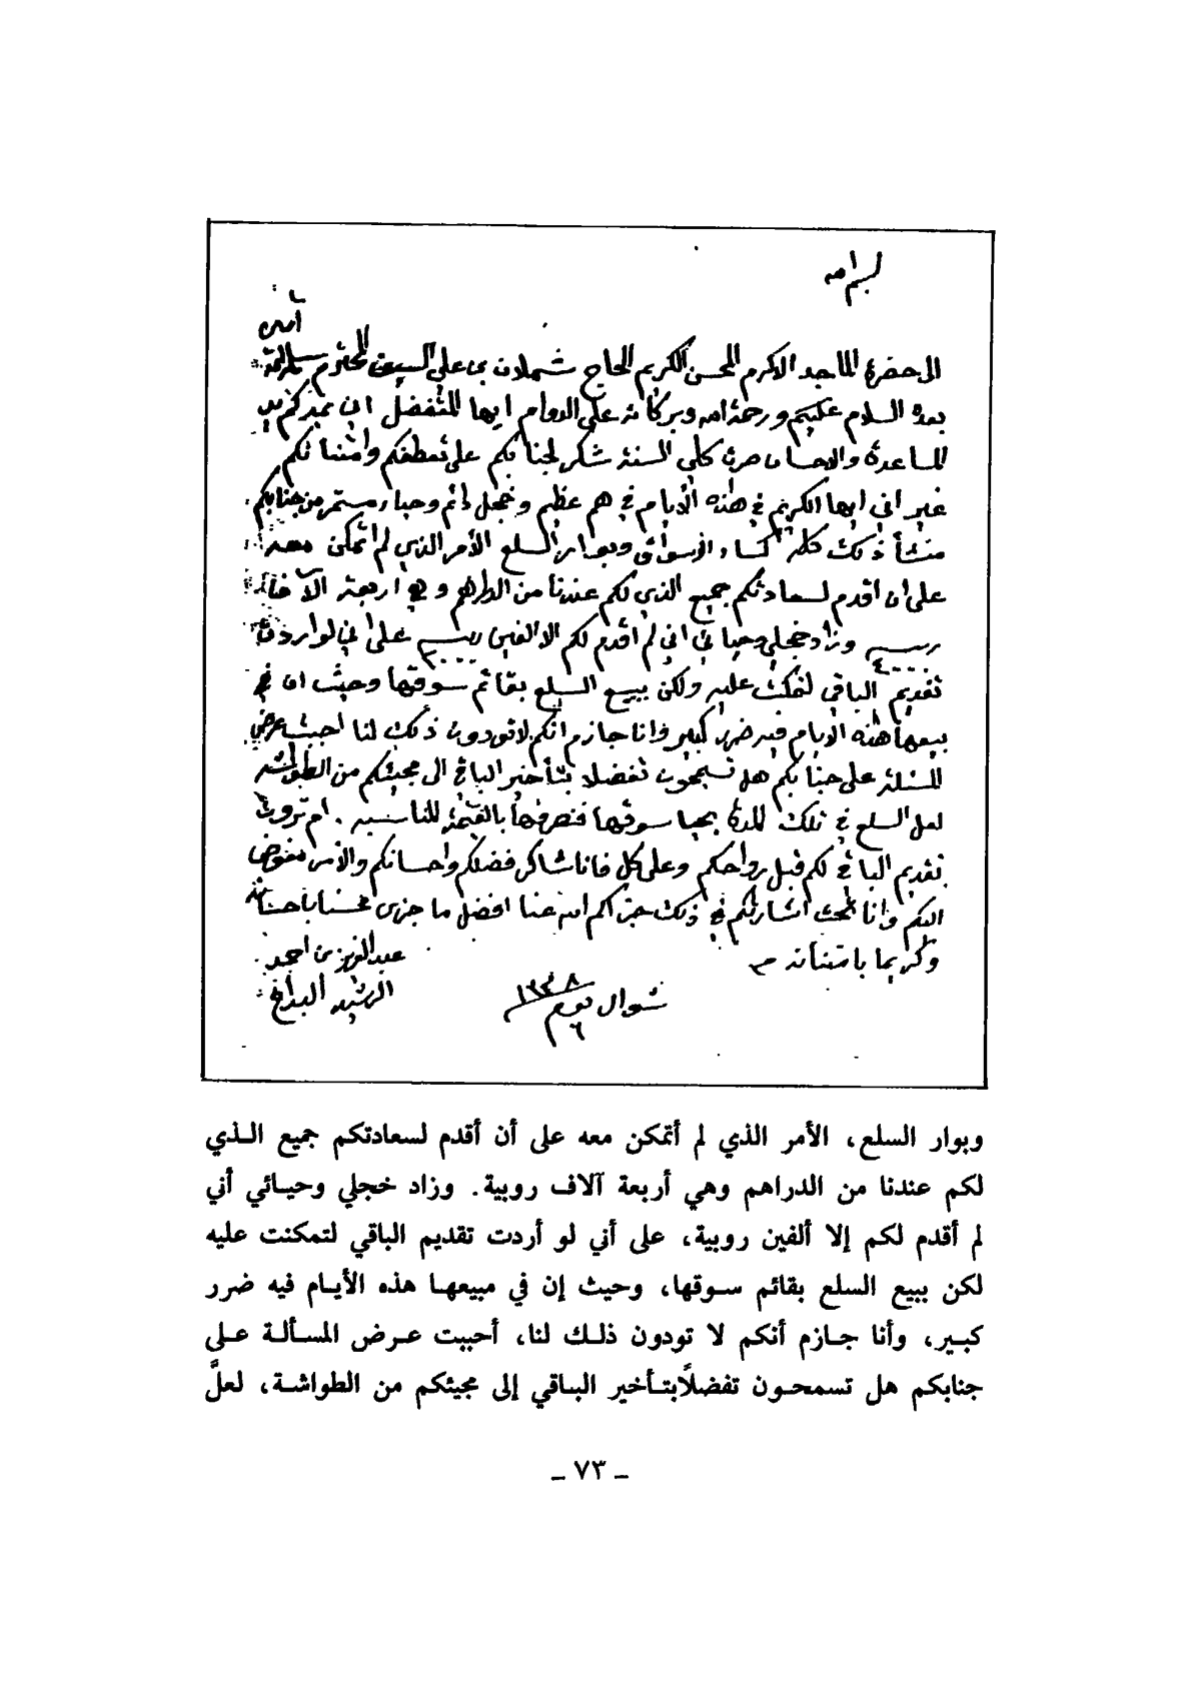 بسم الله
الى حضرة الماجد الاكرم المحسن الكريم الحاج شملان بن علي السيف المحترم سلمه الله
آمين
بعد السلام عليكم ورحمة الله وبركاته على الدوام ايها المتفضل اني بمدكم يد
المساعدة والاحسان صرت كلي السنة شكر لجنابكم على تعطفكم وامتنانكم
غير اني ايها الكريم في هذه الأيام في هم عظيم وخجل دائم وحياء مستمر من جنابكم
منشأ ذلك كله كساد الاسواق وبوار السلع الأمر الذي لم اتمكن معه
على ان اقدم لسعادتكم جميع الذي لكم عندنا من الدراهم وهي اربعة الآف
ربيه ٤٠٠٠ وزاد خجلي وحيائي اني لم اقدم لكم الا الفين ربيه ٢٠٠٠ على اني لو اردت
تقديم الباقي لتمكنت عليه ولكن ببيع السلع بقائم سوقها وحيث ان في
بيعها هذه الايام فيه ضرر كبير وانا جازم انكم لا تودون ذلك لنا احببت عرض
المسئلة على جنابكم هل تسمحون تفضلا بتأخير الباقي الى مجيئكم من الطواشه
لعل السلع في تلك المدة يحيا سوقها فنصرفها بالقيمة المناسبه. ام ترون
تقديم الباقي لكم قبل رواحكم وعلى كل فانا شاكر فضلكم واحسانكم والأمر مفوض
اليكم وانا تحت اشارتكم في ذلك جزاكم الله عنا افضل ما جزى محسنا باحسانه
وكريما بامتنانه
شوال يوم ٦ ١٣٣٨
عبدالعزيز بن احمد
الرشيد البداح
وبوار السلع، الأمر الذي لم أتمكن معه على أن أقدم لسعادتكم جميع الـذي
لكم عندنا من الدراهم وهي أربعة آلاف روبية. وزاد خجلي وحيـائي أني
لم أقدم لكم إلا ألفين روبية، على أني لو أردت تقديم الباقي لتمكنت عليه
لكن ببيع السلع بقائم سـوقها، وحيث إن في مبيعهـا هذه الأيـام فيه ضرر
كبـير، وأنا جـازم أنكم لا تودون ذلـك لنا، أحببت عـرض المسـألـة عـلى
جنابكم هل تسمحـون تفضلاًبتـأخير البـاقي إلى مجيئكم من الطواشـة، لعلَّ
ـ ٧٣ ـ